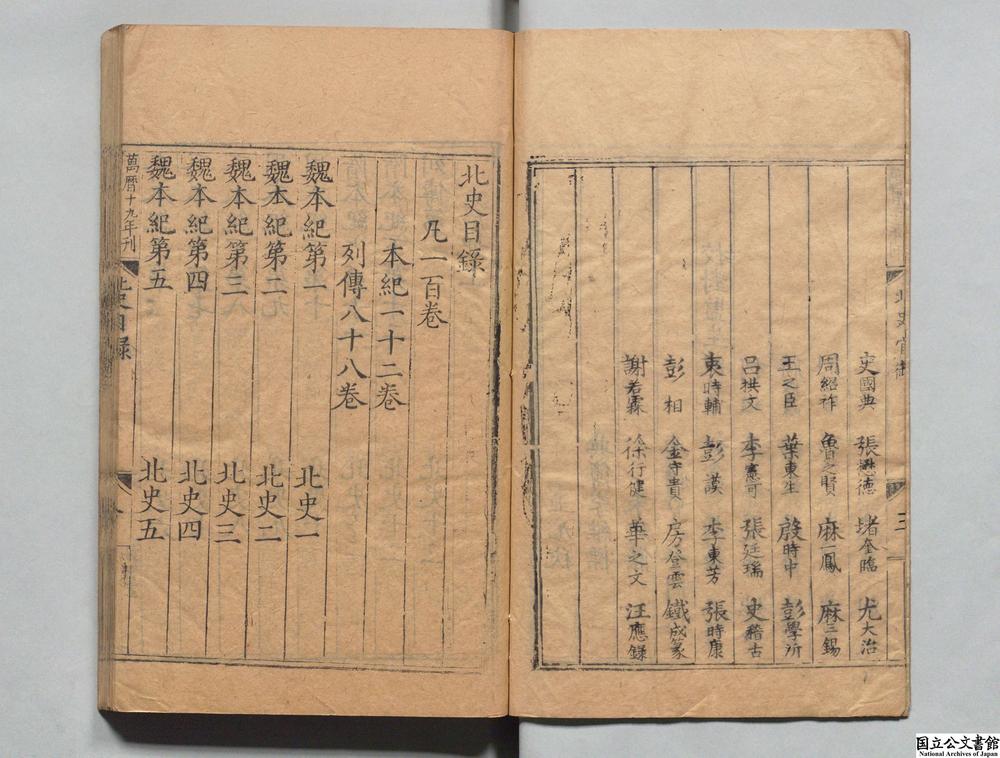 史國典 張懋德 堵奎臨 尤大治
周紹祚 魯之賢 麻一鳳 麻三錫
王之臣 葉東生 殷時中 彭學所
呂拱文 李憲可 張廷瑞 史稽古
袁時輔 彭謨 李東芳 張時康
彭相 金守貴 房登雲 鐵成篆
謝若霖 徐行健 華之文 汪應錄
三
北史目錄
凡一百卷
本紀一十二卷
列傳八十八卷
魏本紀第一 北史一
魏本紀第二 北史二
魏本紀第三 北史三
魏本紀第四 北史四
魏本紀第五 北史五
萬曆十九年刊
北史目錄
国立公文書館
National Archives of Japan